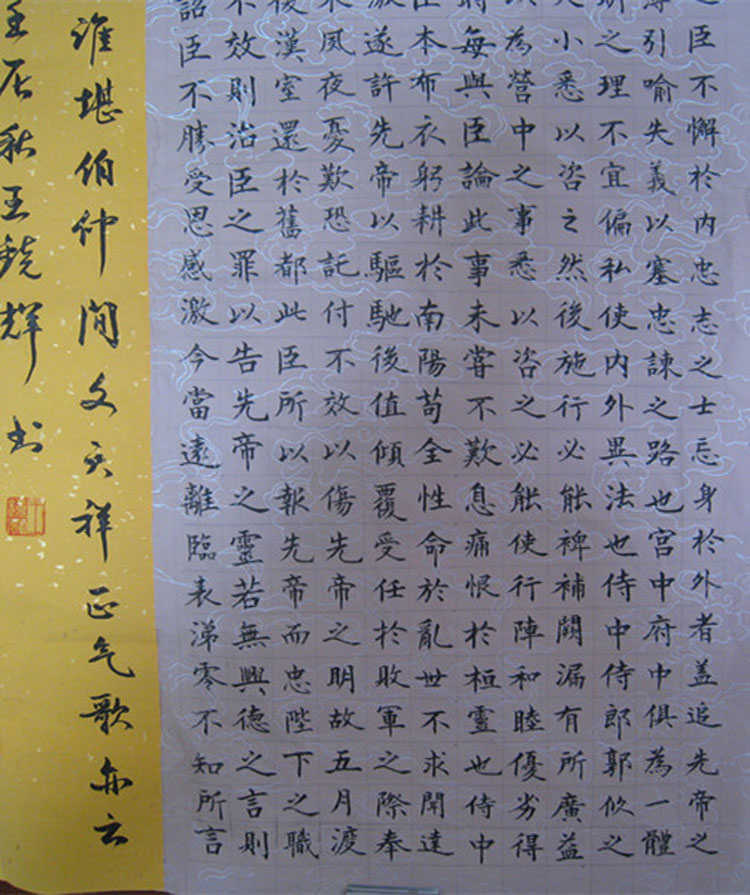 之臣不懈於内忠志之士忘身於外者盖追先帝之
薄引喻失義以塞忠諫之路也宫中府中俱為一體
明之理不宜偏私使内外異法也侍中侍郎郭攸之
大小悉以咨之然後施行必能裨補闕漏有所廣益
以為營中之事悉以咨之必能使行陣和睦優劣得
時每與臣論此事未嘗不歎息痛恨於桓靈也侍中
臣本布衣躬耕於南陽苟全性命於亂世不求聞達
激遂許先帝以驅馳後值傾覆受任於敗軍之際奉
来夙夜憂歎恐託付不效以傷先帝之明故五月渡
後漢室還於舊都此臣所以報先帝而忠陛下之職
不效則治臣之罪以告先帝之靈若無興德之言則
詔臣不勝受恩感激今當遠離臨表涕零不知所言
誰堪伯仲間文天祥正气歌亦云
壬辰秋王鏡輝书